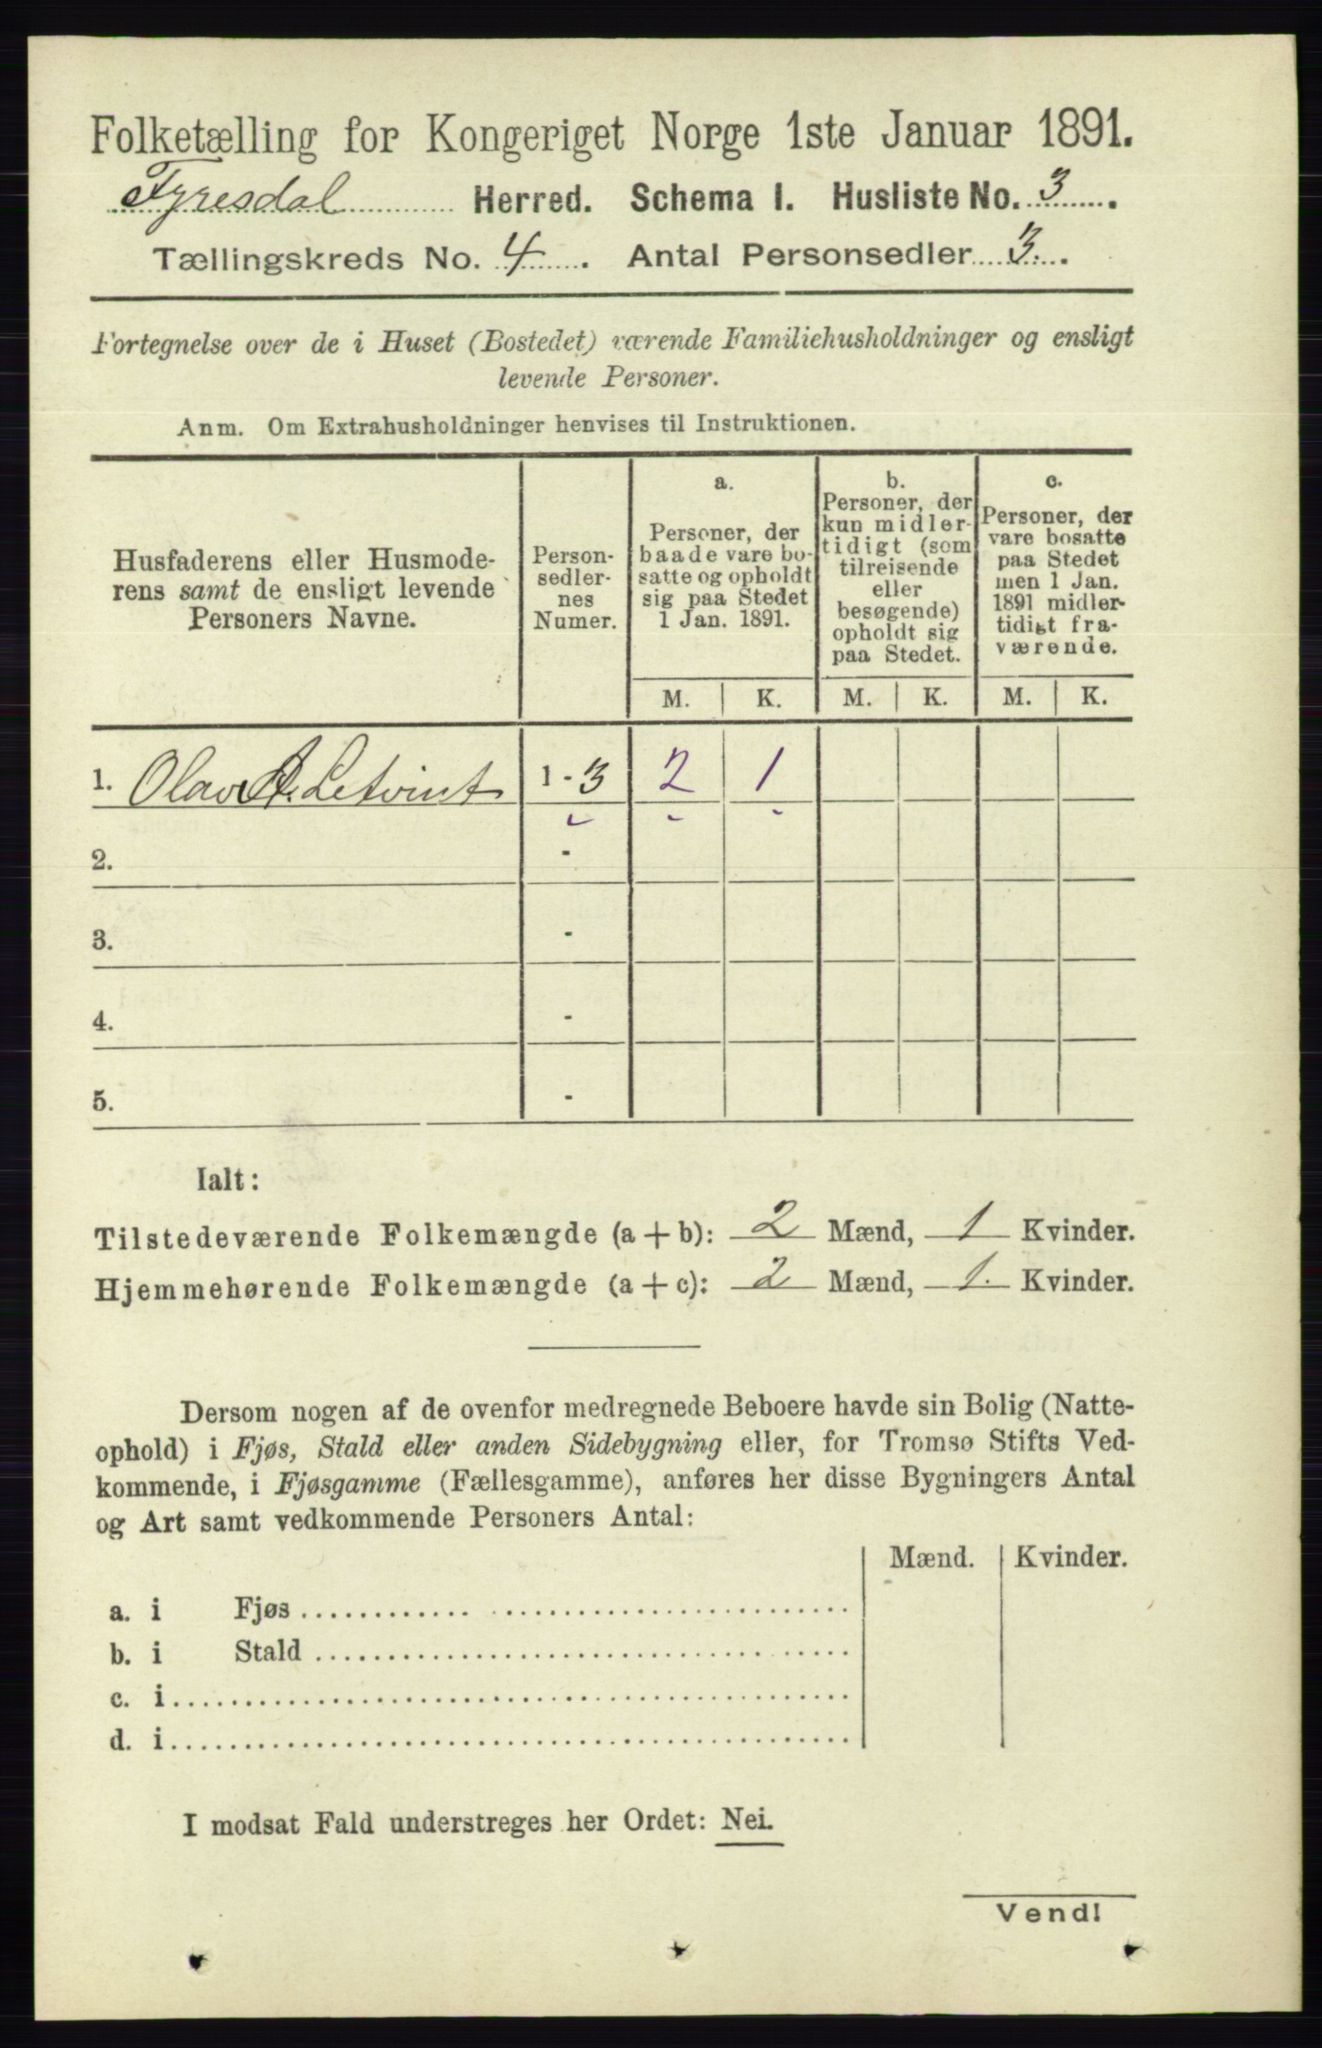 Folketælling for Kongeriget Norge 1ste Januar 1891.
Fyresdal Herred. Schema I. Husliste No. 3.
Tællingskreds No. 4. Antal Personsedler 3.
Fortegnelse over de i Huset (Bostedet) værende Familiehusholdninger og ensligt
levende Personer.
Anm. Om Extrahusholdninger henvises til Instruktionen.
Husfaderens eller Husmode-
rens samt de ensligt levende
Personers Navne.
Person-
sedler-
nes
Numer.
a.
Personer, der
baade vare bo-
satte og opholdt
sig paa Stedet
1 Jan. 1891.
b.
Personer, der
kun midler-
tidigt (som
tilreisende
eller
besøgende)
opholdt sig
paa Stedet.
c.
Personer, der
vare bosatte
paa Stedet
men 1 Jan.
1891 midler-
tidigt fra-
værende.
M. K. M. K. M. K.
1. Olav A. 1 - 3 2 1
2. -
3. -
4. -
5. -
Ialt:
Tilstedeværende Folkemængde (a + b): 2 Mænd, 1 Kvinder.
Hjemmehørende Folkemængde (a + c): 2 Mænd, 1. Kvinder.
Dersom nogen af de ovenfor medregnede Beboere havde sin Bolig (Natte-
ophold) i Fjøs, Stald eller anden Sidebygning eller, for Tromsø Stifts Ved-
kommende, i Fjøsgamme (Fællesgamme), anføres her disse Bygningers Antal
og Art samt vedkommende Personers Antal:
Mænd. Kvinder.
a. i Fjøs
b. i Stald
c. i
d. i
I modsat Fald understreges her Ordet: Nei.
Vend!